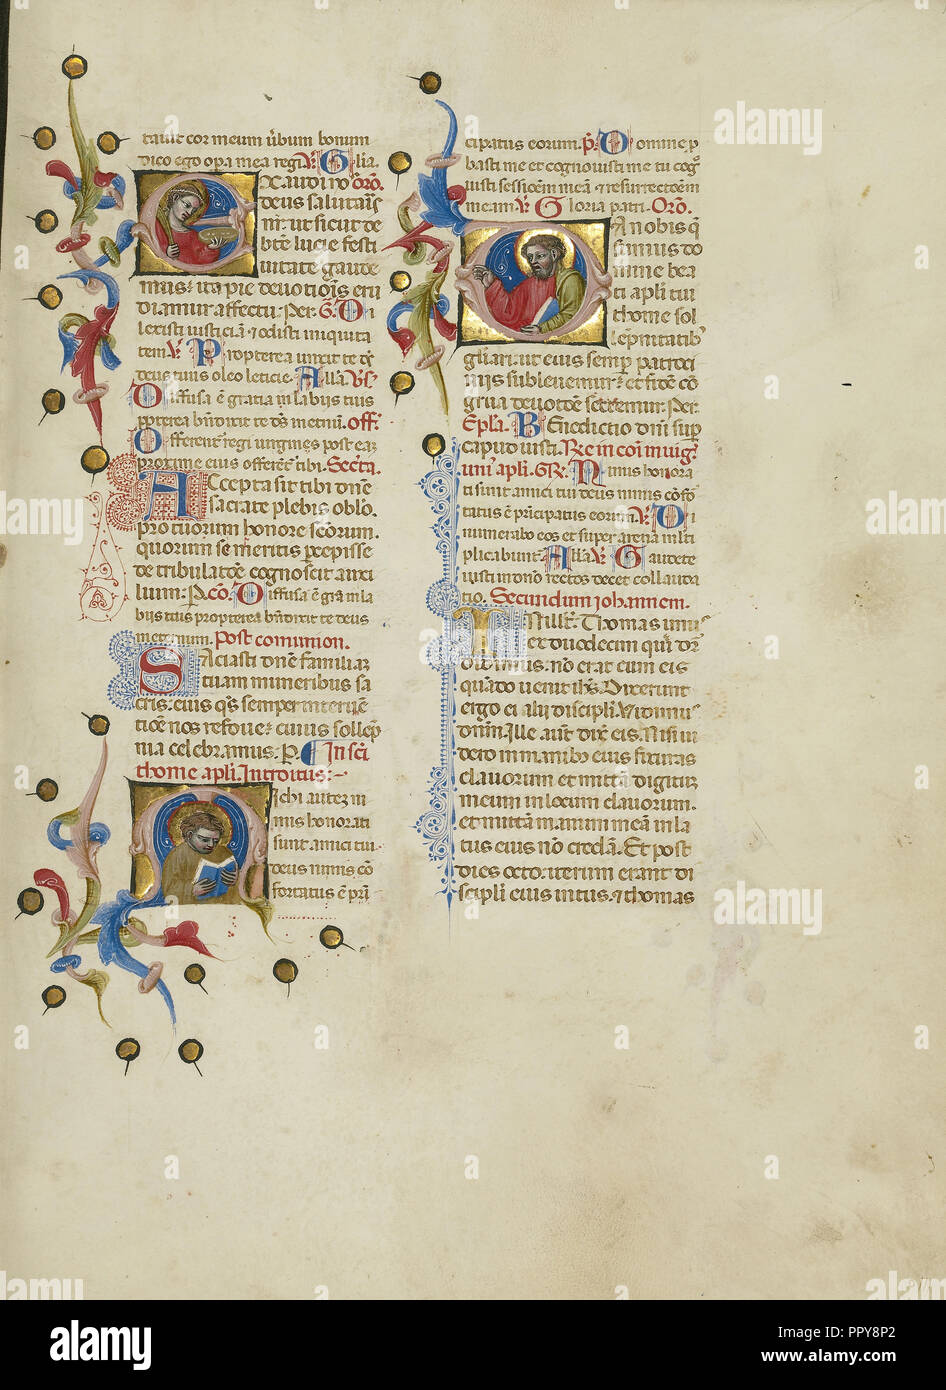 tauit cor meum ũbum bonum
dico ego oꝑa mea regi. ℣. Glia.
EXaudi nõ orõ.
deus salutaĩs
nr̃. ut sicut de
bẽte lucie festi
uitate gaude
mus: ita pie deuotiõis eru
diamur affectu. Per. Gͬ. Di
lexisti iusticiã: ⁊ odisti iniquita
tem ℣. Propterea unxit te dẽ
deus tuus oleo leticie. Alla. ℣s.
Diffusa ẽ gratia in labiis tuis
ꝓpterea bñdixit te dẽs in etnũ. Off.
Offerent regi uirgines post eaz
proxime eius offerẽt tibi. Sec̃ta.
ACcepta sit tibi dñe
sacrate plebis oblõ.
pro tuorum honore scõrum.
quorum se meritis ꝑcepisse
de tribulatõe cognoscit auxi
lium. P. cõ. Diffusa ẽ grã in la
biis tuis propterea bñdixit te deus
in eternum. Post comunion.
SAciasti dñe familiaz
tuam muneribus sa
cris: eius q̃s semper interuẽ
tiõe nos refoue: cuius sollẽp
nia celebramus. P. In scĩ
thome apl̃i. Introitus:
MIchi autez ni
mis honorati
sunt amici tui.
deus nimis cõ
fortatus ẽ pri
cipatus eorum. p̃. Domine p
basti me et cognouisti me tu cog
uisti sessiõem meã ⁊ resurrectõem
meam ℣. Gloria patri. Orõ.
DA nobis q̃
sumus do
mine bea
ti apl̃i tui
thome sol
lẽpnitatib
gl̃iari. ut eius semꝑ patroci
niis subleuemur: et fidẽ cõ
grua deuotõe sectemur. Per.
Epl̃a. Benedictio dñi sup̃
caput iusti. Re in coi in uig.
uni apl̃i. GR. Nimis honora
ti sunt amici tui deus nimis cõfo
tatus ẽ p̃ncipatus eorum. ℣. Di
numerabo eos et super arenã ml̃ti
plicabuntͬ. Alla. ℣. Gaudete
iusti in dño rectos decet collauda
tio. Secundum iohannem.
IN ill̃ t̃. Thomas unu
et duodecim qui dr̃
didimus: nõ erat cum eis
quãdo uenit ihs̃. Dixerunt
ergo ei alii discipl̃i. Vidimus
dñm. Ille aũt dix̃ eis. Nisi ui
dero in manibus eius fixuras
clauorum et mittã digitũ
meum in locum clauorum.
et mittã manum meã in la
tus eius nõ credã. Et post
dies octo: iterum erant di
scipl̃i eius intus. ⁊ thomas
alamy
alamy
alamy
alamy
Image ID: PPY8P2
www.alamy.com